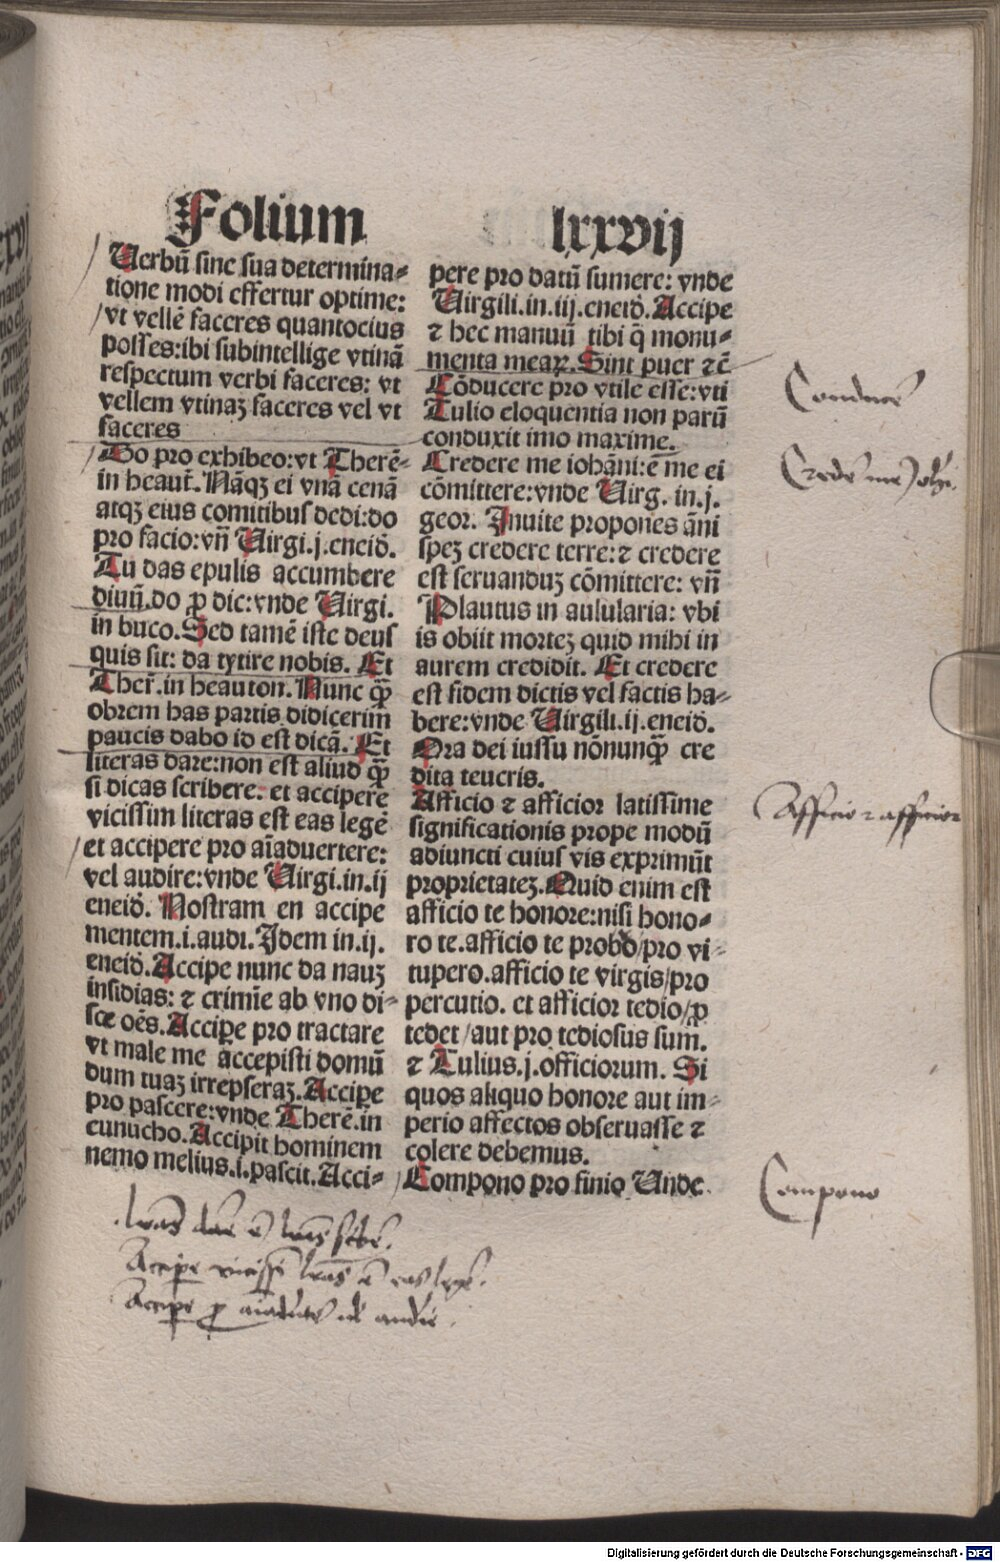 Folium lxxvij
Verbū sine sua determina-
tione modi effertur optime:
vt vellē faceres quantocius
posses: ibi subintellige vtinā
respectum verbi faceres: vt
vellem vtinaz faceres vel vt
faceres
Do pro exhibeo: vt Therē-
in heaut̄. Nāqʒ ei vnā cenā
atqʒ eius comitibus dedi: do
pro facio: vn̄ Virgi. j. eneid̄.
Tu das epulis accumbere
diuū. do ꝓ dic: vnde Virgi.
in buco. Sed tamē iste deus
quis sit: da tytire nobis. Et
Ther̄. in heauton. Nunc qꝫ̄
obrem has partis didicerim
paucis dabo id est dicā. Et
literas dare: non est aliud qꝫ̄
si dicas scribere. et accipere
vicissim literas est eas legē
et accipere pro aīaduertere:
vel audire: vnde Virgi. in. ij
eneid̄. Nostram en accipe
mentem. i. audi. Idem in. ij.
eneid̄. Accipe nunc da nauʒ
insidias: ⁊ crimīe ab vno di-
sce oēs. Accipe pro tractare
vt male me accepisti domū
dum tuaʒ irrepseraʒ. Accipe
pro pascere: vnde Therē. in
eunucho. Accipit hominem
nemo melius. i. pascit. Acci-
pere pro datū sumere: vnde
Virgili. in. iij. eneid̄. Accipe
⁊ hec manuū tibi q̄ monu-
menta meaꝝ. Sint puer ⁊c̄
Cōducere pro vtile esse: vti
Tulio eloquentia non parū
conduxit imo maxime.
Credere me iohāni: ē me ei
cōmittere: vnde Virg. in. j.
geor. Inuite propones āni
speʒ credere terre: ⁊ credere
est seruanduʒ cōmittere: vn̄
Plautus in aulularia: vbi
is obiit morteʒ quid mihi in
aurem credidit. Et credere
est fidem dictis vel factis ha-
bere: vnde Virgili. ij. eneid̄.
Ora dei iussu nōnunqꝫ̄ cre
dita teucris.
Afficio ⁊ afficior latissime
significationis prope modū
adiuncti cuius vis exprimūt
proprietateʒ. Quid enim est
afficio te honore: nisi hono-
ro te. afficio te probō/pro vi-
tupero. afficio te virgis/pro
percutio. et afficior tedio/ꝓ
tedet/aut pro tediosus sum.
⁊ Tulius. j. officiorum. Si
quos aliquo honore aut im-
perio affectos obseruasse ⁊
colere debemus.
Compono pro finio Vnde
Conducere
Credere me Joh̄i.
Afficio ⁊ afficior
Compono
lrās dare ē lrās scribē.
Accipe vicissi lrās ē eas legē.
Accipe ꝓ aīaduertē vel audire.
Digitalisierung gefördert durch die Deutsche Forschungsgemeinschaft - DFG